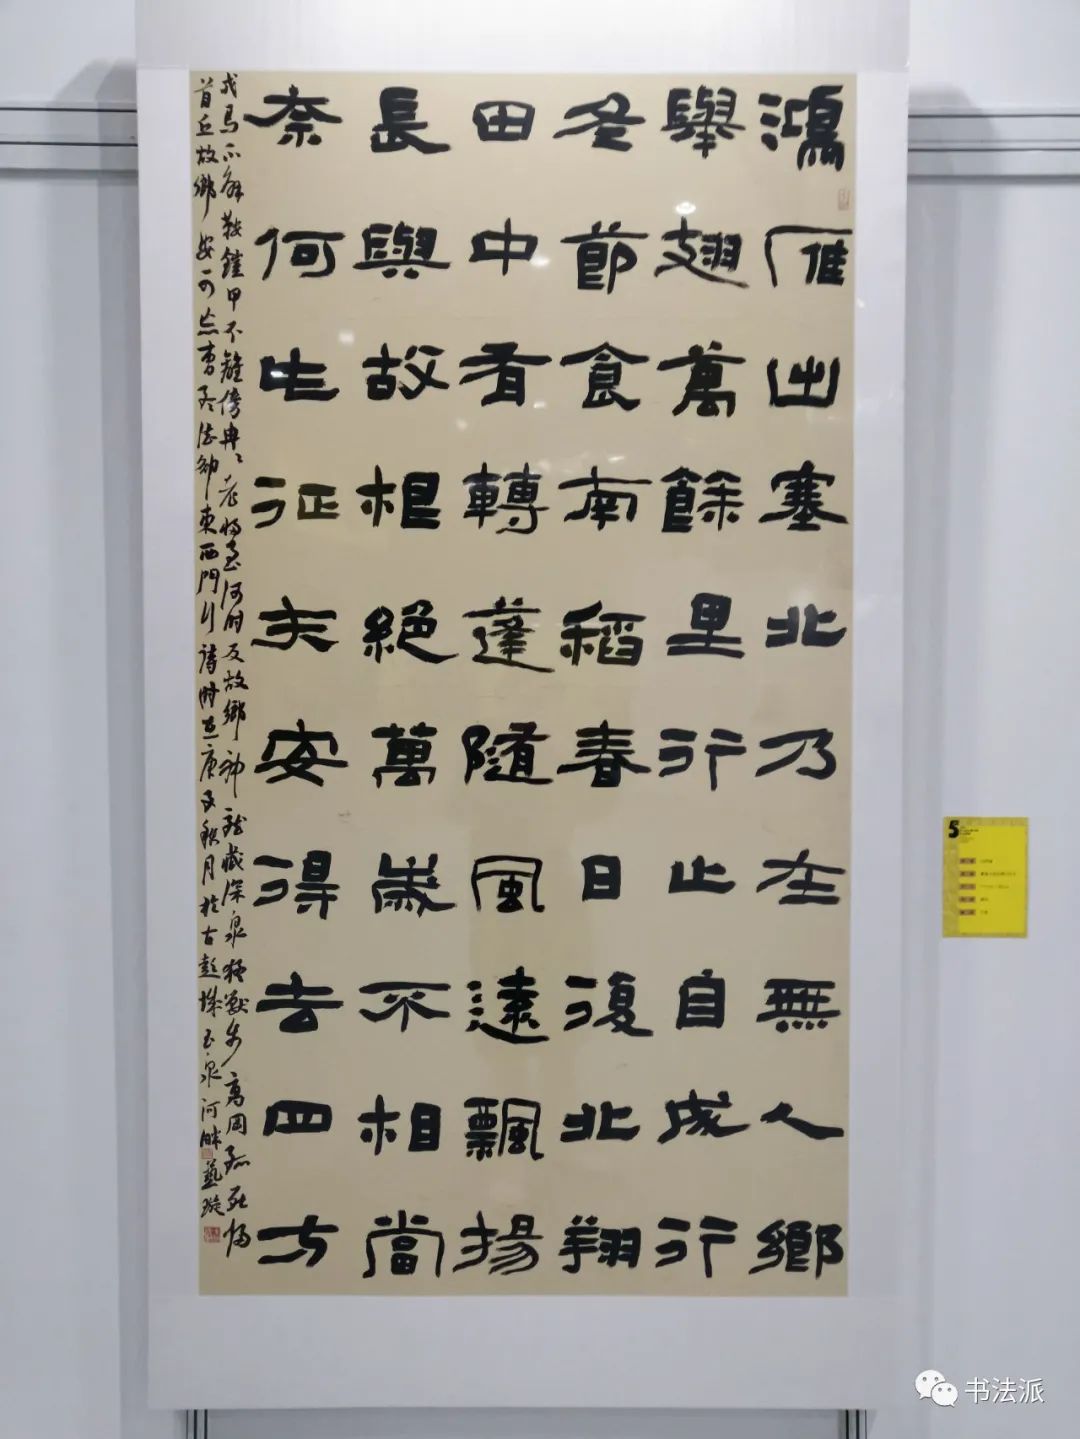 鴻雁出塞北乃在無人鄉
舉翅萬餘里行止自成行
冬節食南稻春日復北翔
田中有轉蓬隨風遠飄揚
長與故根絕萬歲不相當
奈何此征夫安得去四方
戎馬不解鞍鎧甲不離傍冉冉老將至何時反故鄉神龍藏深泉猛獸步高岡狐死歸
首丘故鄉安可忘曹孟德卻東西門行詩時在庚子秋月於古彭城玉泉河畔藝璇
5
书法派